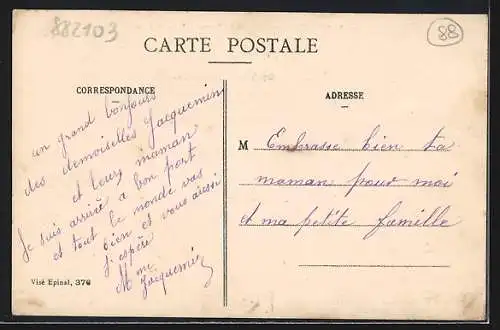 882103
88
CARTE POSTALE
CORRESPONDANCE
un grand bonjours
des demoiselles Jacquemin
et leurs maman
Je suis arrivé a bon port
et tout le monde vas
bien et vous aussi
j'espère
Mme
Jacquemin
Visé Epinal, 376
ADRESSE
M Embrasse bien ta
maman pour moi
et ma petite famille